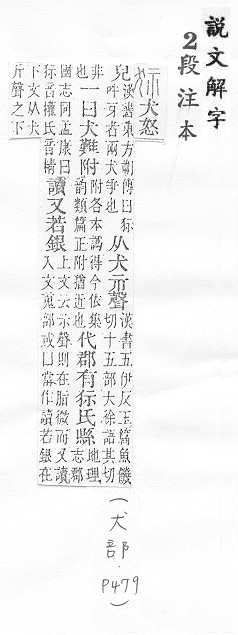 說文解字
2段注本
狋犬怒
皃漢書東方朔傳曰狋吽牙者兩犬爭也从犬示聲漢書五伊反玉篇魚饑切十五部大徐語其切
非也一曰犬難附附各本譌得今依集韵類篇正附猶近也代郡有狋氏縣地理志郡
國志同孟康曰狋音權氏音精讀又若銀上文云示聲則在脂微而又讀入文䰟部或曰當作讀若銀在
下文从犬斤聲之下
(犬部.P479)